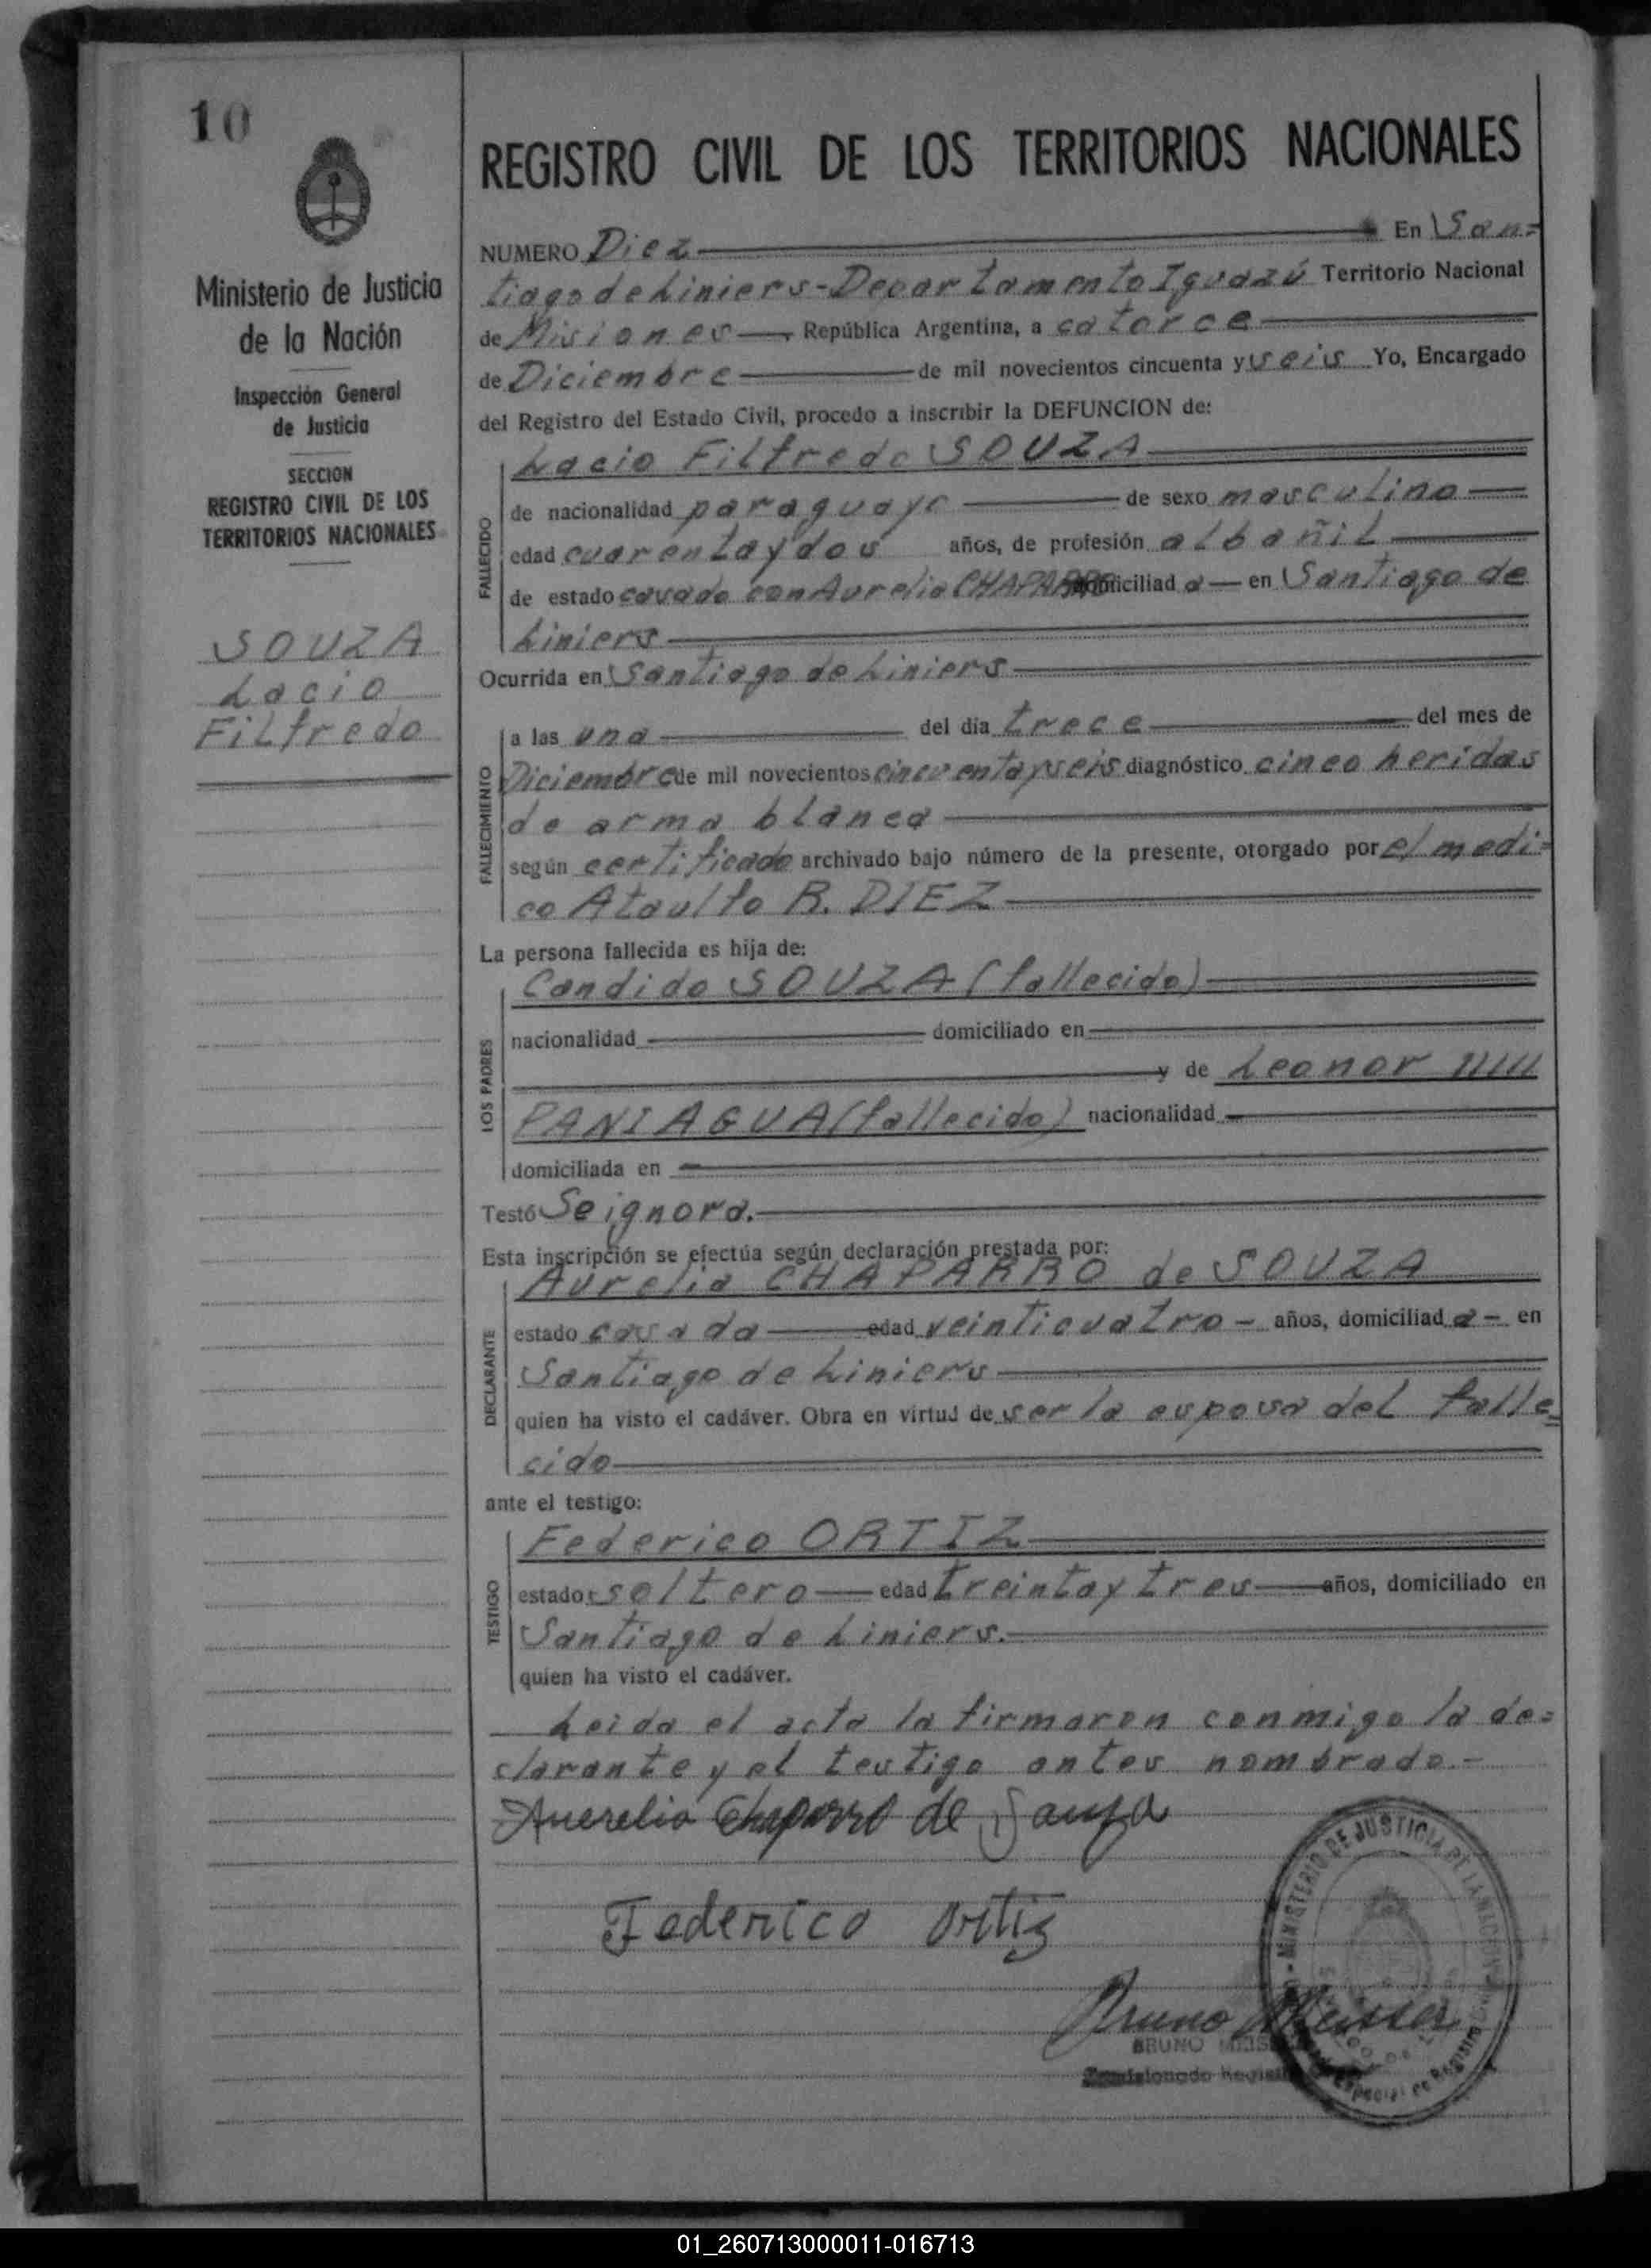 10
Ministerio de Justicia
de la Nación
Inspección General
de Justicia
SECCION
REGISTRO CIVIL DE LOS
TERRITORIOS NACIONALES
SOUZA
Lacio
Filfredo
REGISTRO CIVIL DE LOS TERRITORIOS NACIONALES
NUMERO Diez En San=
tiago de Liniers - Departamento Iguazú Territorio Nacional
de Misiones República Argentina, a catorce
de Diciembre de mil novecientos cincuenta y seis Yo, Encargado
del Registro del Estado Civil, procedo a inscribir la DEFUNCION de:
FALLECIDO
Lacio Filfredo SOUZA
de nacionalidad paraguayo de sexo masculino
edad cuarenta y dos años, de profesión albañil
de estado casado con Aurelia CHAPARRO domiciliad o en Santiago de
Liniers
Ocurrida en Santiago de Liniers
FALLECIMIENTO
a las una del día trece del mes de
Diciembre de mil novecientos cincuenta y seis diagnóstico cinco heridas
de arma blanca
según certificado archivado bajo número de la presente, otorgado por el medi=
co Ataulfo R. DIEZ
La persona fallecida es hija de:
LOS PADRES
Candido SOUZA (fallecido)
nacionalidad domiciliado en
y de Leonor
PANIAGUA (fallecido) nacionalidad
domiciliada en
Testó Se ignora.
Esta inscripción se efectúa según declaración prestada por:
DECLARANTE
Aurelia CHAPARRO de SOUZA
estado casada edad veinticuatro - años, domiciliad a - en
Santiago de Liniers
quien ha visto el cadáver. Obra en virtud de ser la esposa del falle=
cido
ante el testigo:
TESTIGO
Federico ORTIZ
estado soltero edad treinta y tres años, domiciliado en
Santiago de Liniers.
quien ha visto el cadáver.
Leida el acta la firmaron conmigo la de=
clarante y el testigo antes nombrado.-
Auerelia Chaparro de Sauza
Federico Ortiz
Bruno Meisser
BRUNO
MINISTERIO DE JUSTICIA DE LA NACION
01_260713000011-016713